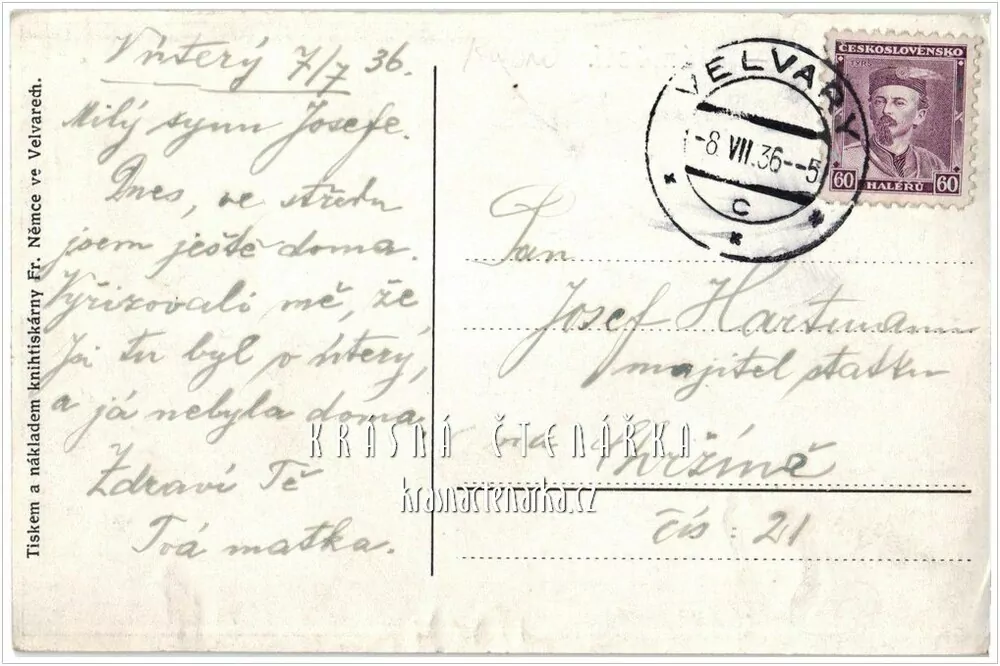 V úterý 7/7 36.
Milý synu Josefe.
Dnes, ve středu
jsem ještě doma.
Vyřizovali mě, že
Jsi tu byl v úterý,
a já nebyla doma,
Zdraví Tě
Tvá matka.
Tiskem a nákladem knihtiskárny Fr. Němce ve Velvarech.
VELVARY
-8.VII.36--5
C
ČESKOSLOVENSKO
TYRŠ
60 HALÉRŮ 60
Pan
Josef Hartmann
majitel statku
ve
čís: 21
KRÁSNÁ ČTENÁŘKA
krasnactenarka.cz